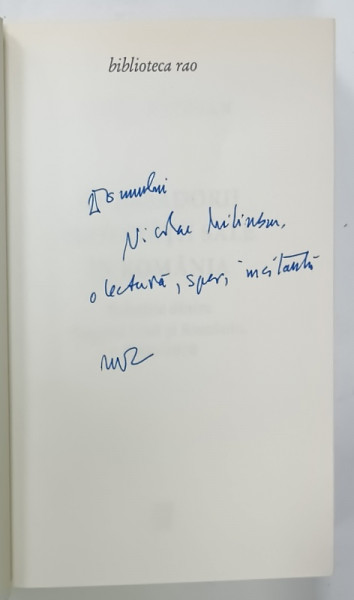 biblioteca rao
Domnului
Nicolae
o lectură, sper, incitantă